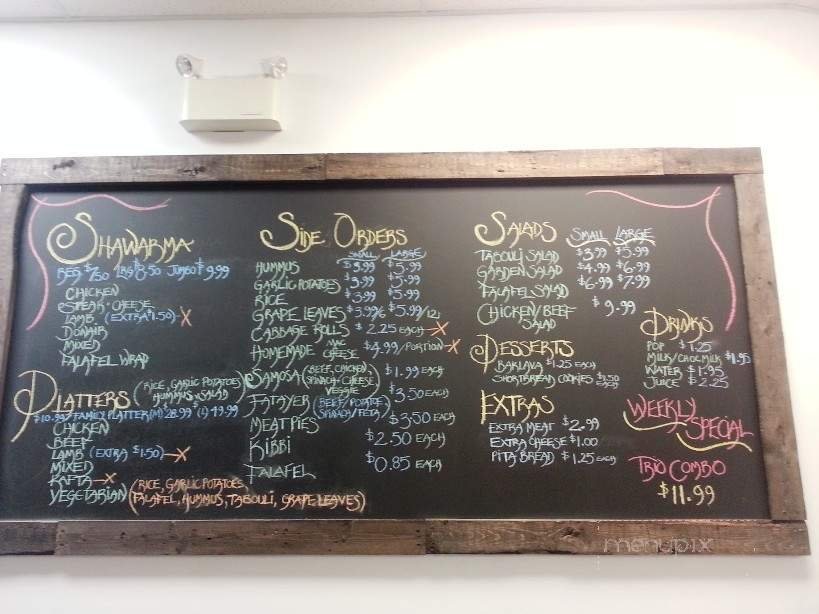 SHAWARMA
REG $7.50 LRG $8.50 JUMBO $9.99
CHICKEN
STEAK+CHEESE
LAMB (EXTRA $1.50) X
DONAIR
MIXED
FALAFEL WRAP
PLATTERS (RICE, GARLIC POTATOES, HUMMUS, SALAD)
$10.99 / FAMILY PLATTER (M) 28.99 (L) 49.99
CHICKEN
BEEF
LAMB (EXTRA $1.50) X
MIXED
KAFTA X
VEGETARIAN (RICE, GARLIC POTATOES,
FALAFEL, HUMMUS, TABOULI, GRAPE LEAVES)
SIDE ORDERS
SMALL LARGE
HUMMUS $3.99 $5.99
GARLIC POTATOES $3.99 $5.99
RICE $3.99 $5.99
GRAPE LEAVES $3.99/6 $5.99/12
CABBAGE ROLLS $2.25 EACH X
HOMEMADE MAC CHEESE $4.99/PORTION X
SAMOSA (BEEF, CHICKEN, SPINACH+CHEESE, VEGGIE) $1.99 EACH
FATAYER (BEEF/POTATOE SPINACH/FETA) $3.50 EACH
MEAT PIES $3.50 EACH
KIBBI $2.50 EACH
FALAFEL $0.85 EACH
SALADS SMALL LARGE
TABOULI SALAD $3.99 $5.99
GARDEN SALAD $4.99 $6.99
FALAFEL SALAD $6.99 $7.99
CHICKEN/BEEF SALAD $9.99
DESSERTS
BAKLAVA $1.25 EACH
SHORTBREAD COOKIES $1.50 EACH
EXTRAS
EXTRA MEAT $2.99
EXTRA CHEESE $1.00
PITA BREAD $1.25 EACH
DRINKS
POP $1.25
MILK/CHOC MILK $1.95
WATER $1.95
JUICE $2.25
WEEKLY
SPECIAL
TRIO COMBO
$11.99
menupix